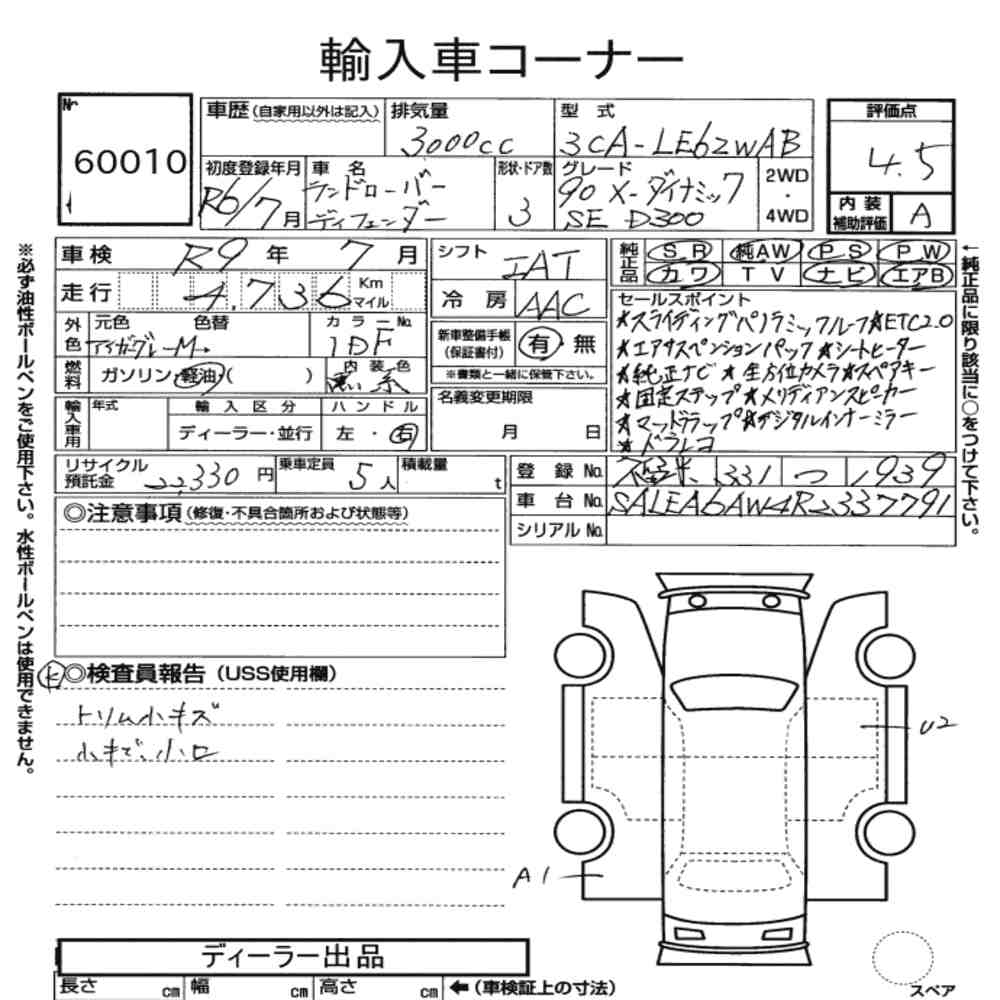 輸入車コーナー
Nr
60010
車歴(自家用以外は記入)
排気量
3000cc
型式
3CA-LE62WAB
評価点
4.5
初度登録年月
R6/7月
車名
ランドローバー
ディフェンダー
形状・ドア数
3
グレード
90 X-ダイナミック
SE D300
2WD
・
4WD
内装
補助評価
A
車検 R9年 7月
走行 4,736 Km
マイル
シフト IAT
冷房 AAC
純正品
SR 純AW PS PW
カワ TV ナビ エアB
外色
元色 色替
アイガーグレーM
カラーNo.
1DF
燃料
ガソリン・軽油・( )
内装色
黒系
新車整備手帳
(保証書付)
有・無
※書類と一緒に保管下さい。
セールスポイント
★スライディングパノラミックルーフ★ETC2.0
★エアサスペンションパック★シートヒーター
★純正ナビ★全方位カメラ★スペアキー
★固定ステップ★メリディアンスピーカー
★マッドフラップ★デジタルインナーミラー
★ドラレコ
輸入車用
年式
輸入区分
ディーラー・並行
ハンドル
左・右
名義変更期限
月 日
リサイクル
預託金
22,330円
乗車定員 5人
積載量 t
登録No. 久留米 331 つ 1939
車台No. SALEA6AW4R2337791
シリアルNo.
◎注意事項(修復・不具合箇所および状態等)
ヒ◎検査員報告(USS使用欄)
トリム小キズ
小キズ、小凹
U2
A1
ディーラー出品
長さ cm 幅 cm 高さ cm ←(車検証上の寸法)
スペア
※必ず油性ボールペンをご使用下さい。水性ボールペンは使用できません。
←純正品に限り該当に○をつけて下さい。